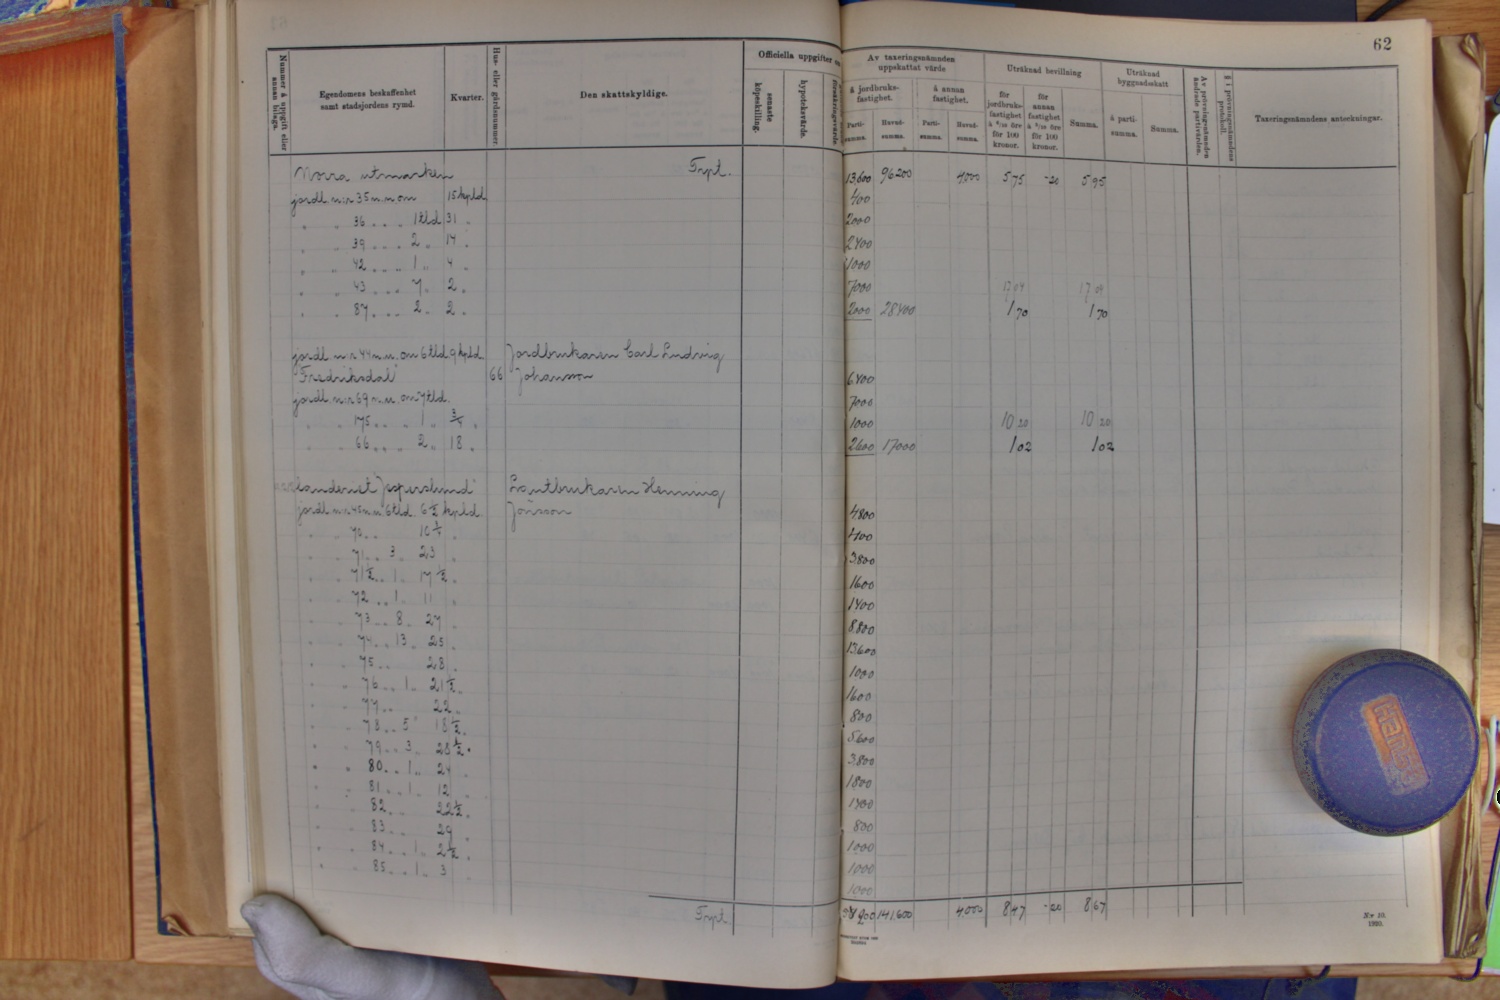 62
Nummer å uppgift eller annan bilaga.
Egendomens beskaffenhet samt stadsjordens rymd.
Kvarter.
Hus- eller gårdsnummer.
Den skattskyldige.
Officiella uppgifter om
senaste köpeskilling.
hypoteksvärde.
försäkringsvärde.
Av taxeringsnämnden uppskattat värde
å jordbruksfastighet.
å annan fastighet.
Parti-summa.
Huvud-summa.
Parti-summa.
Huvud-summa.
Uträknad bevillning
för jordbruksfastighet å 6/10 öre för 100 kronor.
för annan fastighet å 5/10 öre för 100 kronor.
Summa.
Uträknad byggnadsskatt
å parti-summa.
Summa.
Av prövningsnämnden ändrade partivärden.
§ i prövningsnämndens protokoll.
Taxeringsnämndens anteckningar.
Trpt. 13,600 96200 4,000 575 -20 595
Norra utmarken
jordl. n:r 35 m.m om 15 kpld. 400
" " 36 " " 1 tld 31 " 2000
" " 39 " " 2 " 14 " 2400
" " 42 " " 1 " 4 " 1000
" " 43 " " 7 " 2 " 7000 17 04 17 04
" " 87 " " 2 " 2 " 2000 28400 1 70 1 70
jordl. n:r 44 m.m. om 6 tld 9 kpld. Jordbrukaren Carl Ludvig
"Fredriksdal" 66 Johansson 6400
jordl. n:r 69 m.m. om 7 tld. 7000
" " 175 " " 1 " 3/4 " 1000 10 20 10 20
" " 66 " " 2 " 18 " 2600 17000 1 02 1 02
landeriet "Jesperslund" Lantbrukaren Henning
jordl. n:r 46 m.m 6 tld. 6 1/2 kpld. Jönsson 4,800
" " 70 " " 10 1/4 " 400
" " 71 " 3 " 23 " 3,800
" " 71 1/2 " 1 " 17 1/2 " 1600
" " 72 " 1 " 11 " 1400
" " 73 " 8 " 27 " 8,800
" " 74 " 13 " 25 " 13,600
" " 75 " " 28 " 1000
" " 76 " 1 " 21 1/2 " 1600
" " 77 " " 22 " 800
" " 78 " 5 " 18 1/2 " 5,600
" " 79 " 3 " 28 1/2 " 3,800
" " 80 " 1 " 24 " 1800
" " 81 " 1 " 12 "
" " 82 " " 22 1/2 " 800
" " 83 " " 29 " 1000
" " 84 " 1 " 2 1/2 " 1000
" " 85 " 1 " 3 " 1000
Trpt. 141,600 4,000 847 -20 867
N:r 10.
1920.